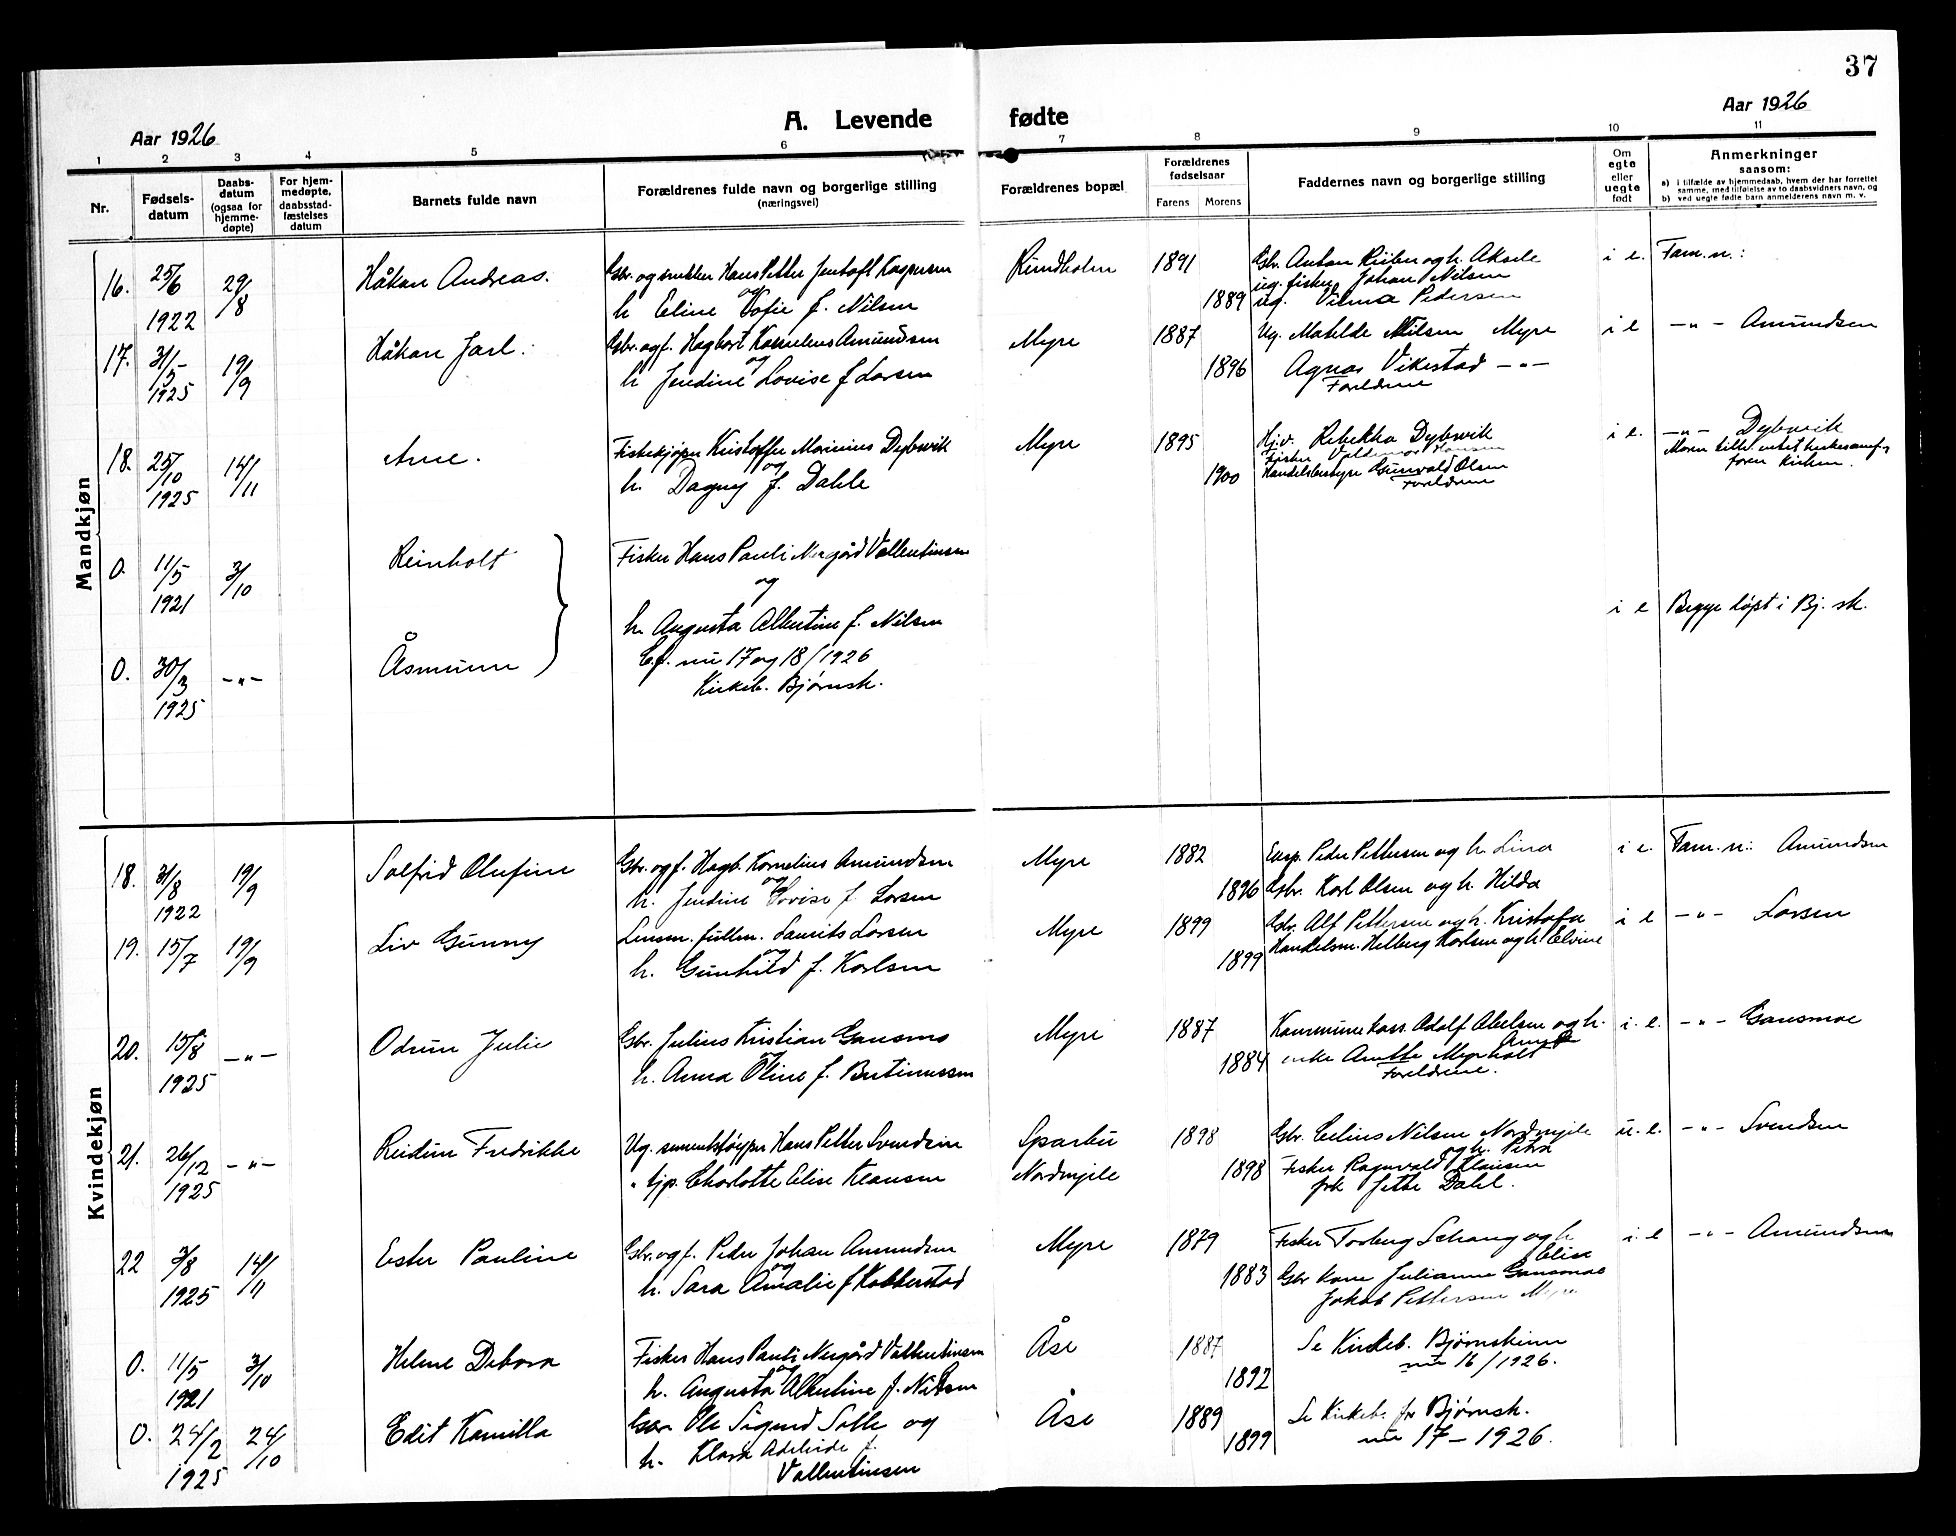 37
Aar 1926
A. Levende fødte
Aar 1926
1 2 3 4 5 6 7 8 9 10 11
Nr.
Fødsels-
datum
Daabs-
datum
(ogsaa for
hjemme-
døpte)
For hjem-
medøpte,
daabsstad-
fæstelses
datum
Barnets fulde navn
Forældrenes fulde navn og borgerlige stilling
(næringsvei)
Forældrenes bopæl
Forældrenes
fødselsaar
Farens Morens
Faddernes navn og borgerlige stilling
Om
egte
eller
uegte
født
Anmerkninger
sansom:
a) i tilfælde av hjemmedaab, hvem der har forrettet
samme, med tilføielse av to daabsvidners navn, og
b) ved uegte fødte barn anmelderens navn m. v.
Mandkjøn
16. 25/6 1922 29/8 Håkan Andreas.
Gbr. og snekker Hans Petter Jentoft Kaspersen
og
h Eline Sofie f. Nilsen
1891
1889
Gbr. Anton Riiber og h. Aksele
ug. fisker Johan Nilsen
ug. Vilma Pedersen
i e. Fam.n.:
17. 31/5 1925 19/9 Håkan Jarl.
Gbr. og f. Hagbart Kornelius Amundsen
og
h Jendine Lovise f Larsen
Myre 1887
1896
Ug. Matilde Nilsen Myre
Agnas Vikestad -"-
Foreldrene
i e -"- Amundsen
18. 25/10 1925 14/11 Arne.
Fiskekjøper Kristoffer Marinius Dybwik
og
h. Dagny f. Dahle
Myre 1895
1900
Hj.v. Rebekka Dybwik
Fisker Valdemar Hansen
Handelsbestyr Gunvald Olsen
Foreldrene
i e. -"- Dybwik
0. 11/5 1921 3/10 Reinholt
Fisker Hans Pauli Nergård Vallentinsen
og
h. Augusta Albertine f. Nilsen
i e Begge døpt i Bj. sk.
0. 30/3 1925 -"- Åsmunn
Cf. nr 17 og 18/1926
Kirkeb. Bjørnsk.
Kvindekjøn
18. 31/8 1922 19/9 Solfrid Olufine
Gbr. og f. Hagb. Kornelius Amundsen
og
h. Jendine Lovise f. Larsen
Myre 1882
1896
Eksp. Peder Pettersen og h. Lina
Gbr. Karl Olsen og h. Hilda
i e. Fam. n: Amundsen
19. 15/7 19/9 Liv Gunny
Lensm. fullm. Laurits Larsen
og
h. Gunhild f. Karlsen
Myre 1899
1899
Gbr. Alf Pettersen og h. Kristofa
Handelsm. Helberg Karlsen og h. Elvine
i e -"- Larsen
20. 15/8 1925 -"- Odrun Julie
Gbr. Julius Kristian Gansmo
og
h. Anna Oline f. Bertinussen
Myre 1887
1884
Kommunekass. Adolf Abelsen og h.
enke Anette Myrholt
Foreldrene.
i. e. -"- Gansmoe
21. 26/12 1925 -"- Reidun Fredrikke
Ug. sementstøyper Hans Petter Svendsen
" tjp. Charlotte Elise Klausen
Sparbu
Nordmjele
1898
1898
Gbr. Edius Nilsen Nordmjele
og h. Petra
Fisker Ragnvald Klausen
frk Jette Dahl.
u. e. -"- Svendsen
22 3/8 1925 14/11 Ester Pauline
Gbr. og f. Peder Johan Amundsen
og
h. Sara Amalie f Kobberstad
Myre 1879
1883
Fisker Torberg Schang og h
Elise
Gbr kone Julianne Gansmoe
Jakob Pettersen Myre
i. e -"- Amundsen
0. 11/5 1921 3/10 Helene Debora
Fisker Hans Pauli Nergård Vallentinsen
og
h. Augusta Albertine f. Nilsen
Åse 1887
1892
Se Kirkeb. Bjørnskinn
nr 16/1926.
0. 24/2 1925 24/10 Edit Kamilla
Gbr. Ole Sigurd Solli og
h. Klara Adeleide f.
Vallentinsen
Åse 1889
1899
Se Kirkeb. for Bjørnsk.
nr 17-1926.